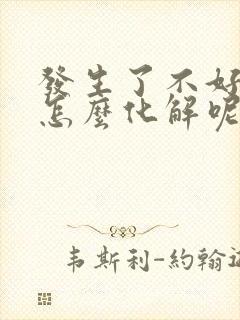 發生了不好
怎麼化解呢
韦斯利-約翰